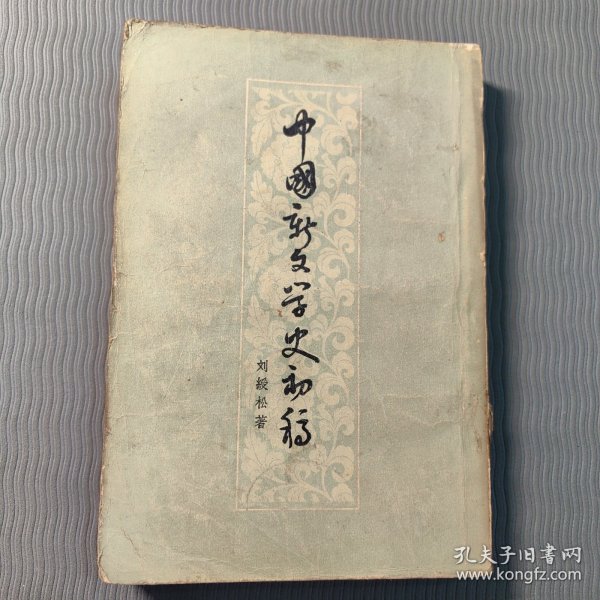 中國新文学史初稿
刘綬松著
孔夫子旧書网
www.kongfz.com